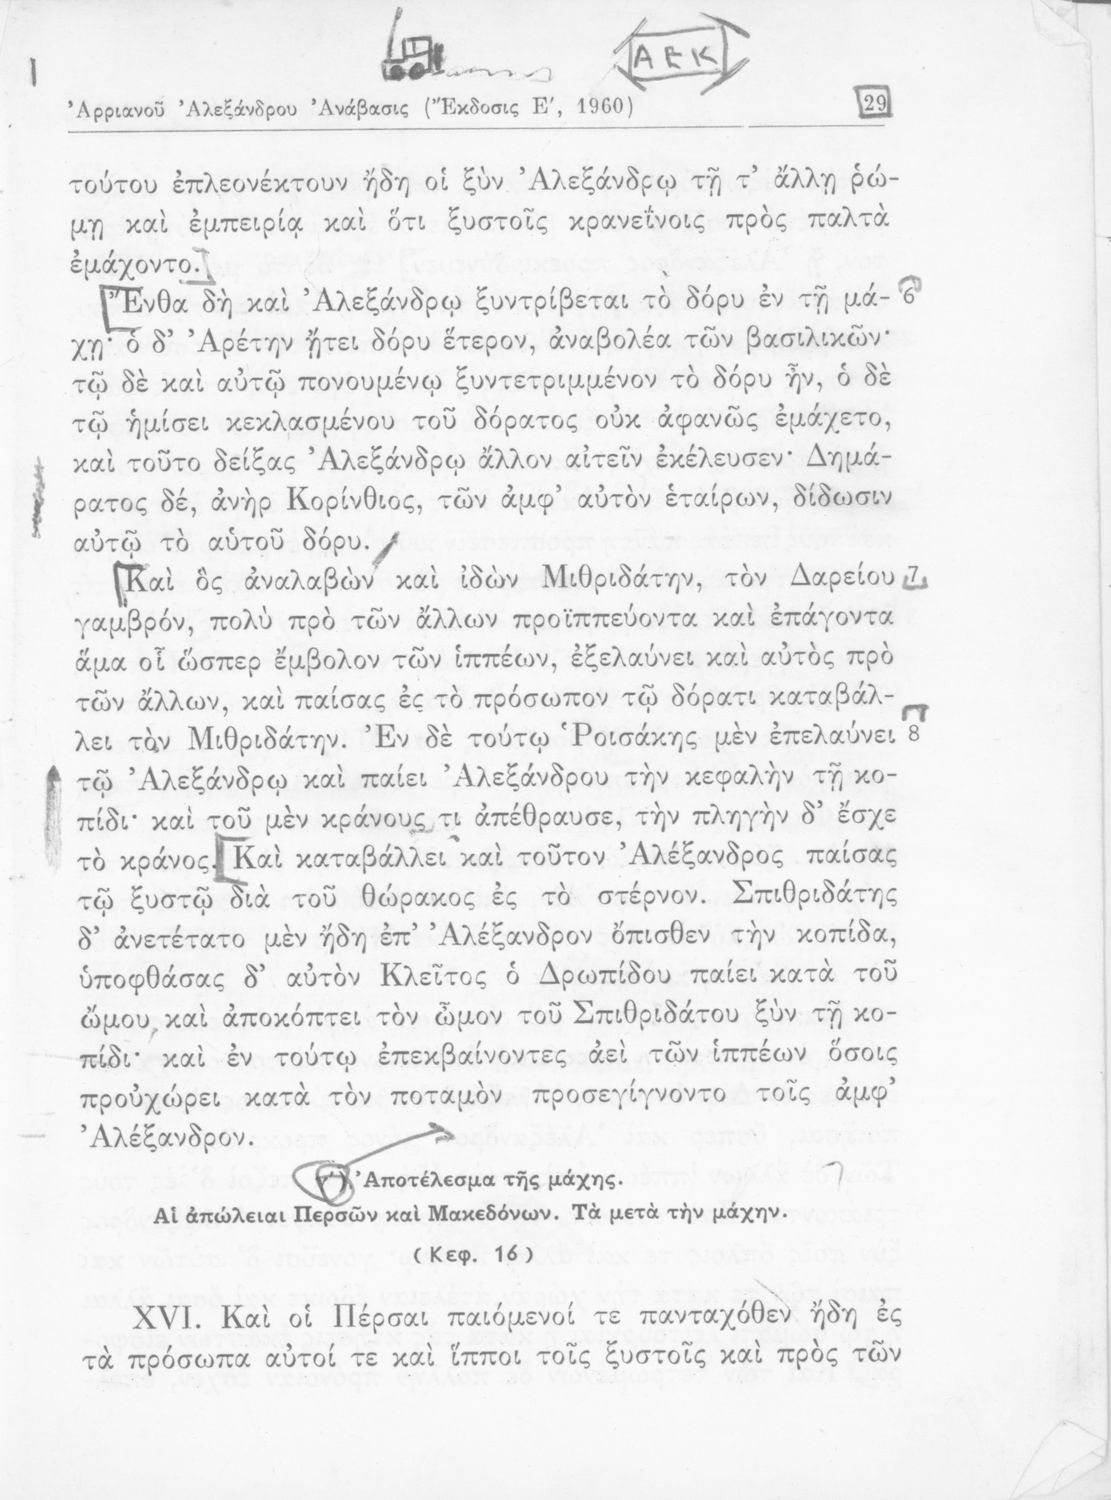 ΑΕΚ
Ἀρριανοῦ Ἀλεξάνδρου Ἀνάβασις (Ἔκδοσις Ε′, 1960) 29
τούτου ἐπλεονέκτουν ἤδη οἱ ξὺν Ἀλεξάνδρῳ τῇ τ’ ἄλλῃ ῥώ-
μῃ καὶ ἐμπειρίᾳ καὶ ὅτι ξυστοῖς κρανεΐνοις πρὸς παλτὰ
ἐμάχοντο.
Ἔνθα δὴ καὶ Ἀλεξάνδρῳ ξυντρίβεται τὸ δόρυ ἐν τῇ μά- 6
χῃ· ὁ δ’ Ἀρέτην ᾔτει δόρυ ἕτερον, ἀναβολέα τῶν βασιλικῶν·
τῷ δὲ καὶ αὐτῷ πονουμένῳ ξυντετριμμένον τὸ δόρυ ἦν, ὁ δὲ
τῷ ἡμίσει κεκλασμένου τοῦ δόρατος οὐκ ἀφανῶς ἐμάχετο,
καὶ τοῦτο δείξας Ἀλεξάνδρῳ ἄλλον αἰτεῖν ἐκέλευσεν· Δημά-
ρατος δέ, ἀνὴρ Κορίνθιος, τῶν ἀμφ’ αὐτὸν ἑταίρων, δίδωσιν
αὐτῷ τὸ αὑτοῦ δόρυ.
Καὶ ὃς ἀναλαβὼν καὶ ἰδὼν Μιθριδάτην, τὸν Δαρείου 7
γαμβρόν, πολὺ πρὸ τῶν ἄλλων προϊππεύοντα καὶ ἐπάγοντα
ἅμα οἷ ὥσπερ ἔμβολον τῶν ἱππέων, ἐξελαύνει καὶ αὐτὸς πρὸ
τῶν ἄλλων, καὶ παίσας ἐς τὸ πρόσωπον τῷ δόρατι καταβάλ-
λει τὸν Μιθριδάτην. Ἐν δὲ τούτῳ Ῥοισάκης μὲν ἐπελαύνει 8
τῷ Ἀλεξάνδρῳ καὶ παίει Ἀλεξάνδρου τὴν κεφαλὴν τῇ κο-
πίδι· καὶ τοῦ μὲν κράνους τι ἀπέθραυσε, τὴν πληγὴν δ’ ἔσχε
τὸ κράνος. Καὶ καταβάλλει καὶ τοῦτον Ἀλέξανδρος παίσας
τῷ ξυστῷ διὰ τοῦ θώρακος ἐς τὸ στέρνον. Σπιθριδάτης
δ’ ἀνετέτατο μὲν ἤδη ἐπ’ Ἀλέξανδρον ὄπισθεν τὴν κοπίδα,
ὑποφθάσας δ’ αὐτὸν Κλεῖτος ὁ Δρωπίδου παίει κατὰ τοῦ
ὤμου καὶ ἀποκόπτει τὸν ὦμον τοῦ Σπιθριδάτου ξὺν τῇ κο-
πίδι· καὶ ἐν τούτῳ ἐπεκβαίνοντες ἀεὶ τῶν ἱππέων ὅσοις
προὐχώρει κατὰ τὸν ποταμὸν προσεγίγνοντο τοῖς ἀμφ’
Ἀλέξανδρον.
γ′) Ἀποτέλεσμα τῆς μάχης.
Αἱ ἀπώλειαι Περσῶν καὶ Μακεδόνων. Τὰ μετὰ τὴν μάχην.
(Κεφ. 16)
XVI. Καὶ οἱ Πέρσαι παιόμενοί τε πανταχόθεν ἤδη ἐς
τὰ πρόσωπα αὐτοί τε καὶ ἵπποι τοῖς ξυστοῖς καὶ πρὸς τῶν